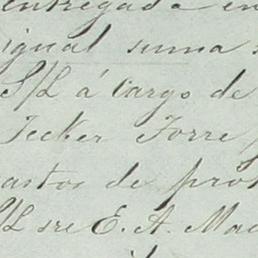 entregada en
igual suma
S/L á cargo de
Tecker Torre
astos de pro
S/L sre E. A. Mac